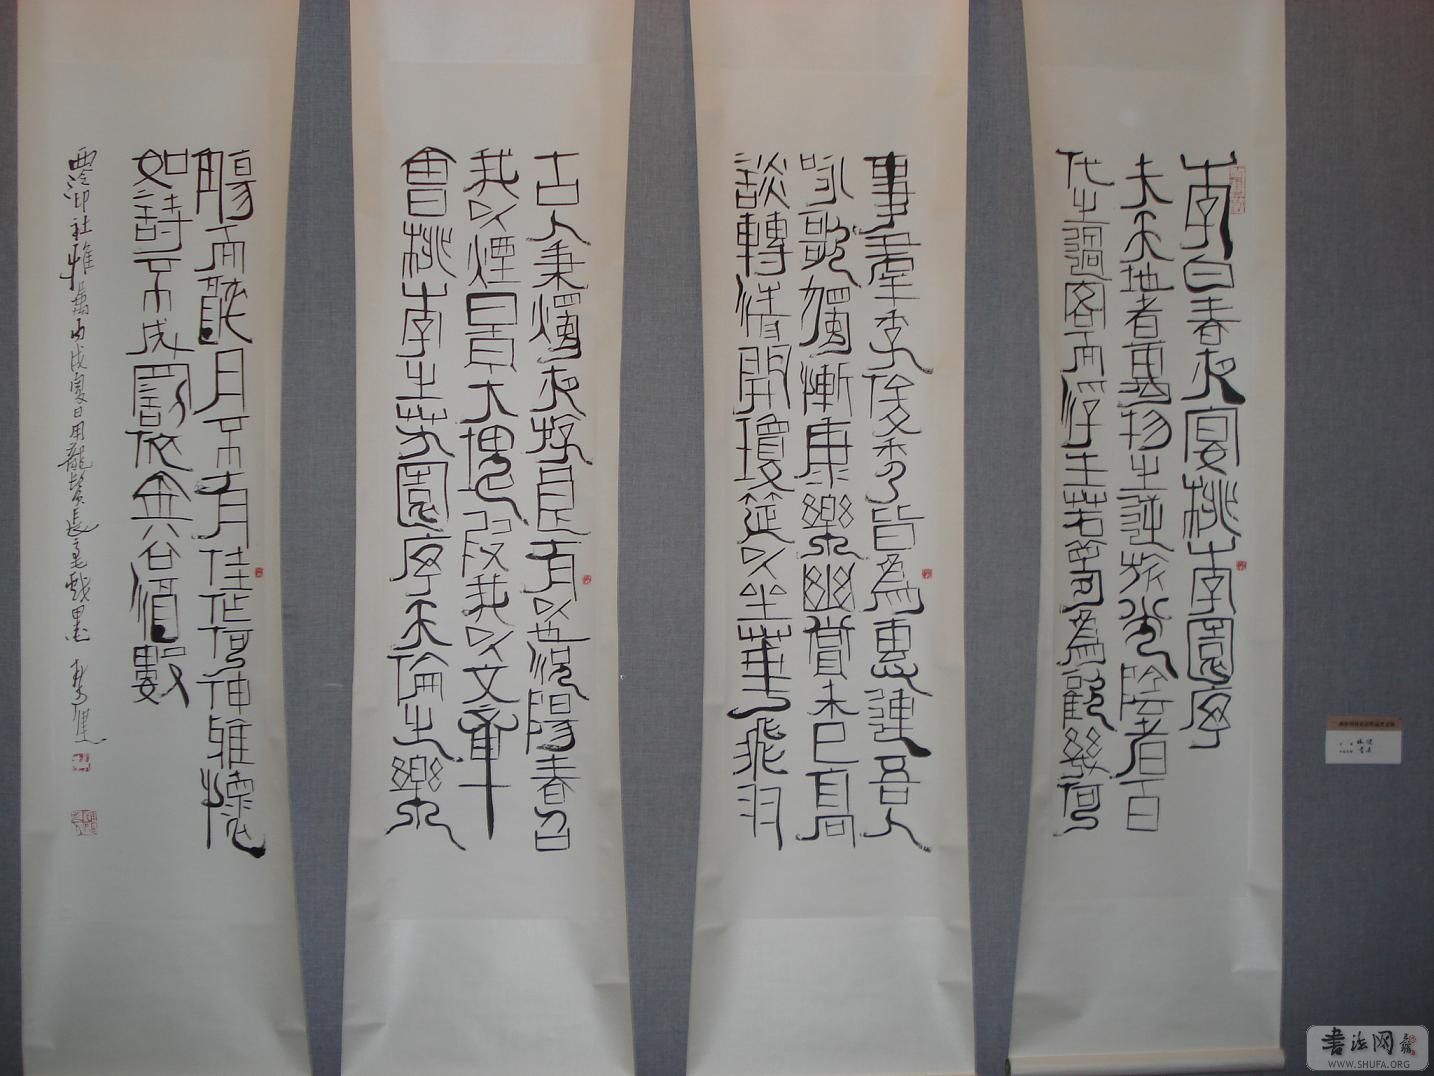 李白春夜宴桃李園序
夫天地者萬物之逆旅光陰者百
代之過客而浮生若夢為歡幾何
事羣季俊秀皆為惠連吾人
詠歌獨慚康樂幽賞未已高
談轉清開瓊筵以坐華飛羽
古人秉燭夜游良有以也況陽春召
我以煙景大塊假我以文章
會桃李之芳園序天倫之樂
觴而醉月不有佳作何伸雅懷
如詩不成罰依金谷酒數
西泠印社雅屬丙戌夏日用龍鬚長毫戲墨 林健
林健
書法
書法网
WWW.SHUFA.ORG